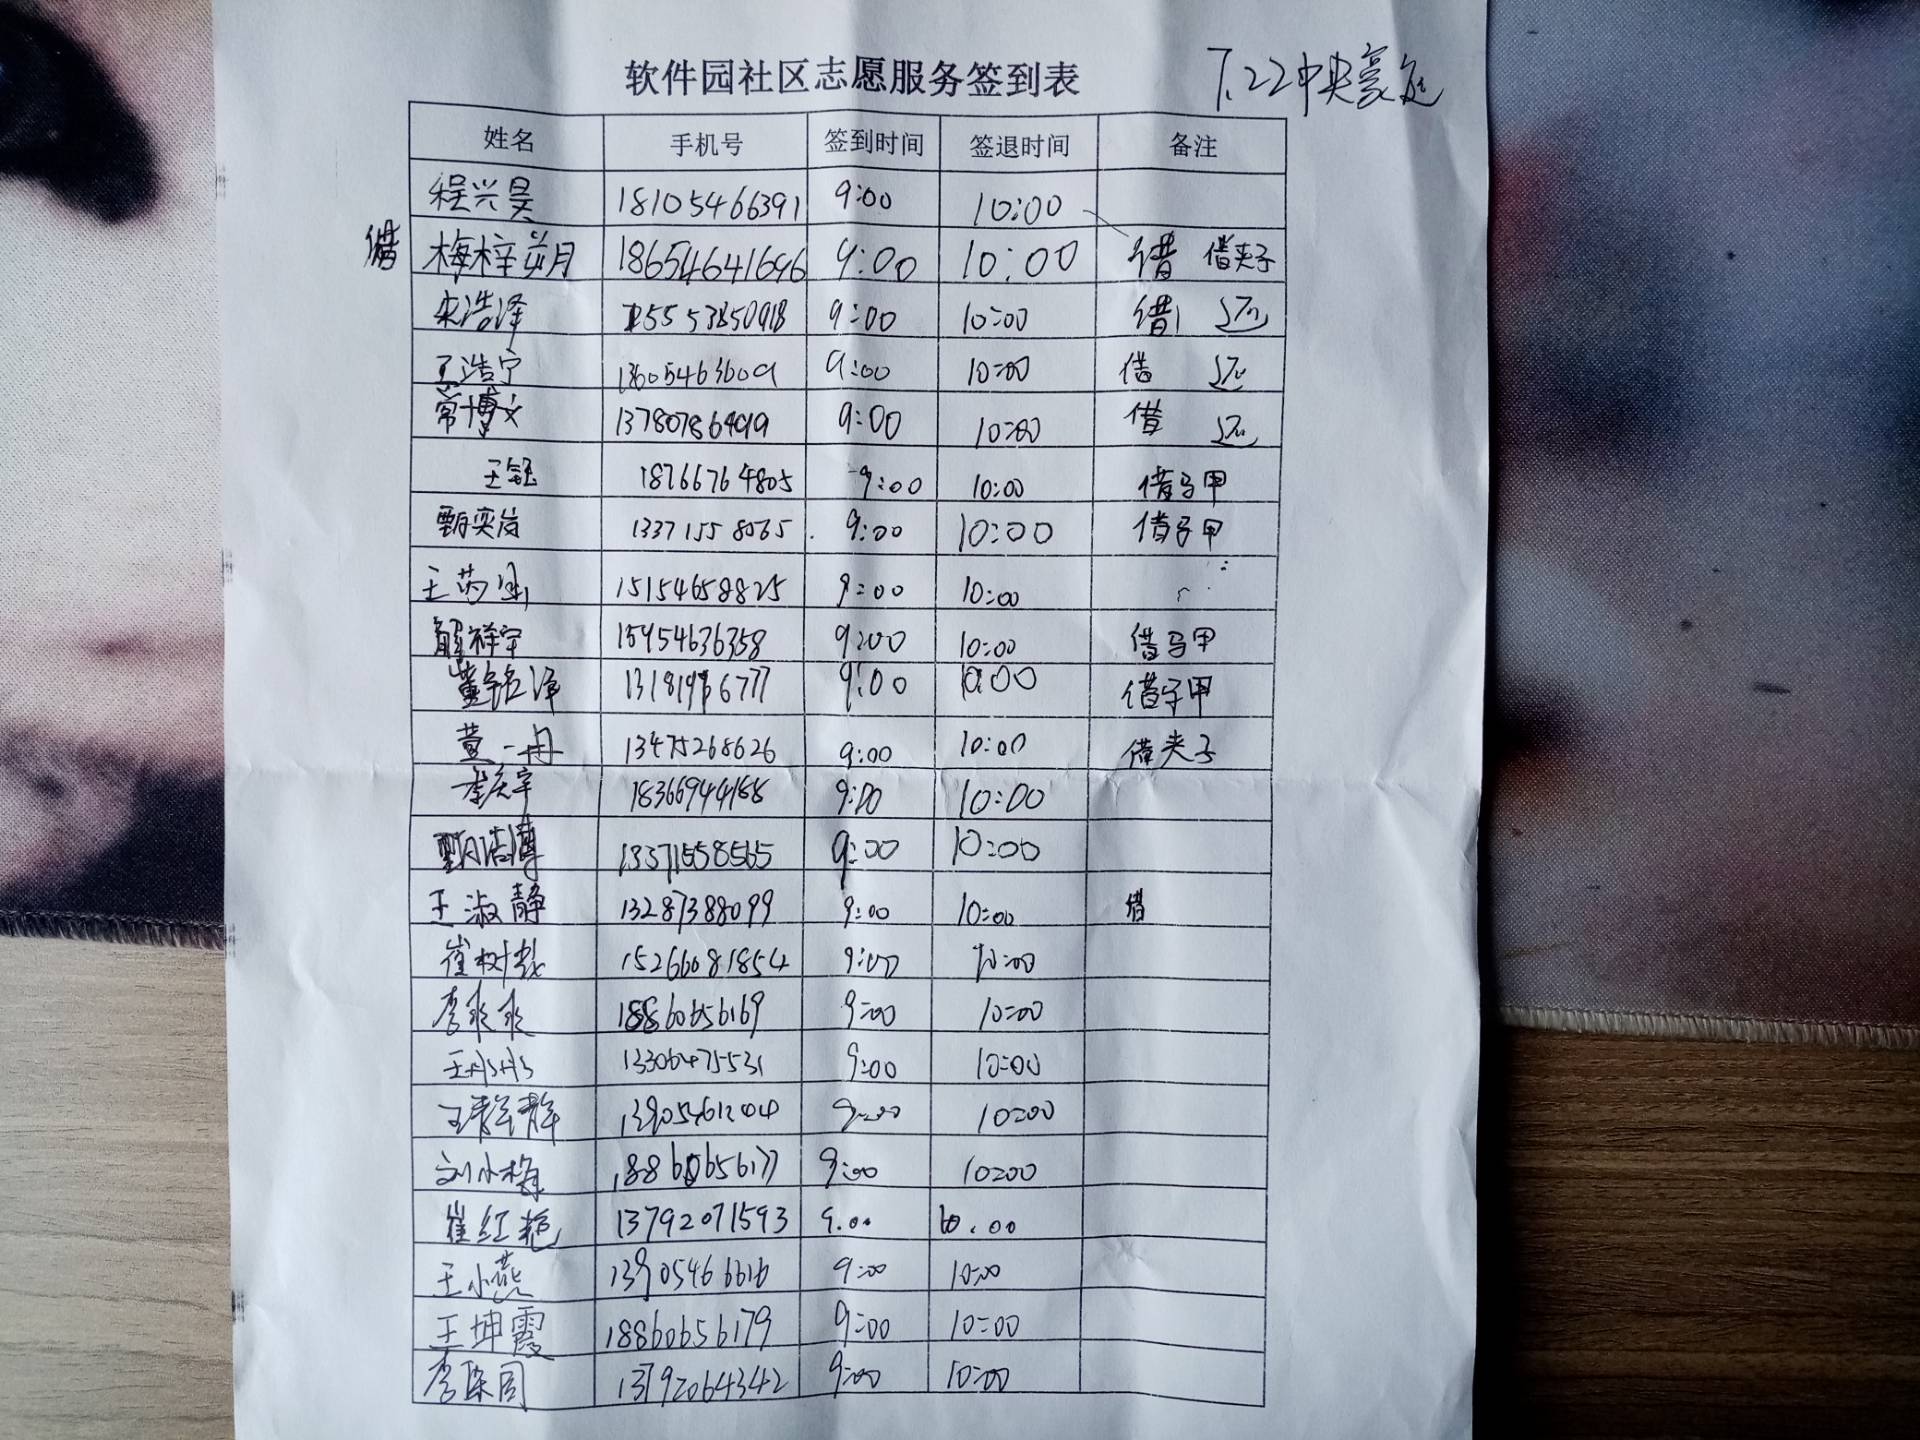 软件园社区志愿服务签到表 7.22中央豪庭
姓名 手机号 签到时间 签退时间 备注
程兴昊 18105466391 9:00 10:00
借 梅梓 月 18654641696 9:00 10:00 借 借夹子
宋浩泽 9:00 10:00 借 还
王浩宁 9:00 10:00 借 还
常博文 13780786499 9:00 10:00 借 还
王钰 18766764805 9:00 10:00 借马甲
甄奕岚 13371558065 9:00 10:00 借马甲
王芮 15154658825 9:00 10:00
解祥宇 15954636358 9:00 10:00 借马甲
董铭泽 9:00 10:00 借马甲
董一丹 13475268626 9:00 10:00 借夹子
李庆宇 9:00 10:00
甄浩博 13371558565 9:00 10:00
王淑静 13287388099 9:00 10:00 借
崔树 15266081854 9:00 10:00
李爽爽 18860656169 9:00 10:00
王彤彤 13306475531 9:00 10:00
王静静 9:00 10:00
刘小梅 18860656177 9:00 10:00
崔红艳 13792071593 9.00 10.00
王小燕 9:00 10:00
王坤霞 18860656179 9:00 10:00
李 13792064342 9:00 10:00